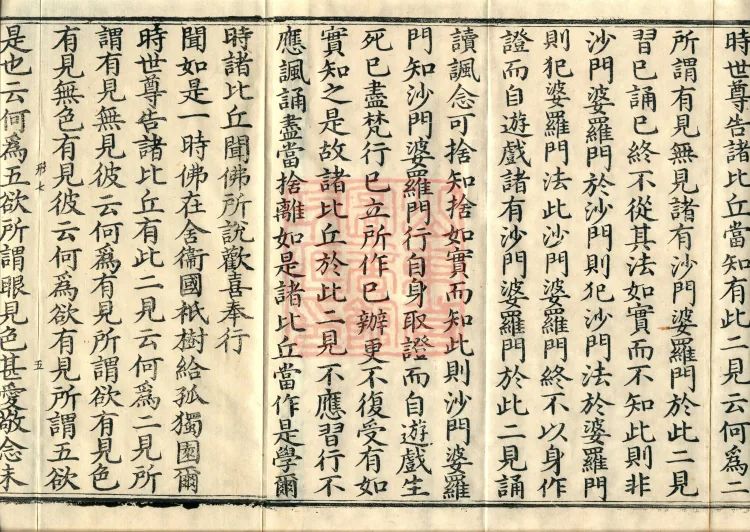 時世尊告諸比丘當知有此二見云何爲二
所謂有見無見諸有沙門婆羅門於此二見
習已誦已終不從其法如實而不知此則非
沙門婆羅門於沙門則犯沙門法於婆羅門
則犯婆羅門法此沙門婆羅門終不以身作
證而自遊戲諸有沙門婆羅門於此二見誦
讀諷念可捨知捨如實而知此則沙門婆羅
門知沙門婆羅門行自身取證而自遊戲生
死已盡梵行已立所作已辦更不復受有如
實知之是故諸比丘於此二見不應習行不
應諷誦盡當捨離如是諸比丘當作是學爾
時諸比丘聞佛所說歡喜奉行
聞如是一時佛在舍衛國祇樹給孤獨園爾
時世尊告諸比丘有此二見云何爲二見所
謂有見無見彼云何爲有見所謂欲有見色
有見無色有見彼云何爲欲有見所謂五欲
七 五
是也云何爲五欲所謂眼見色甚愛敬念未